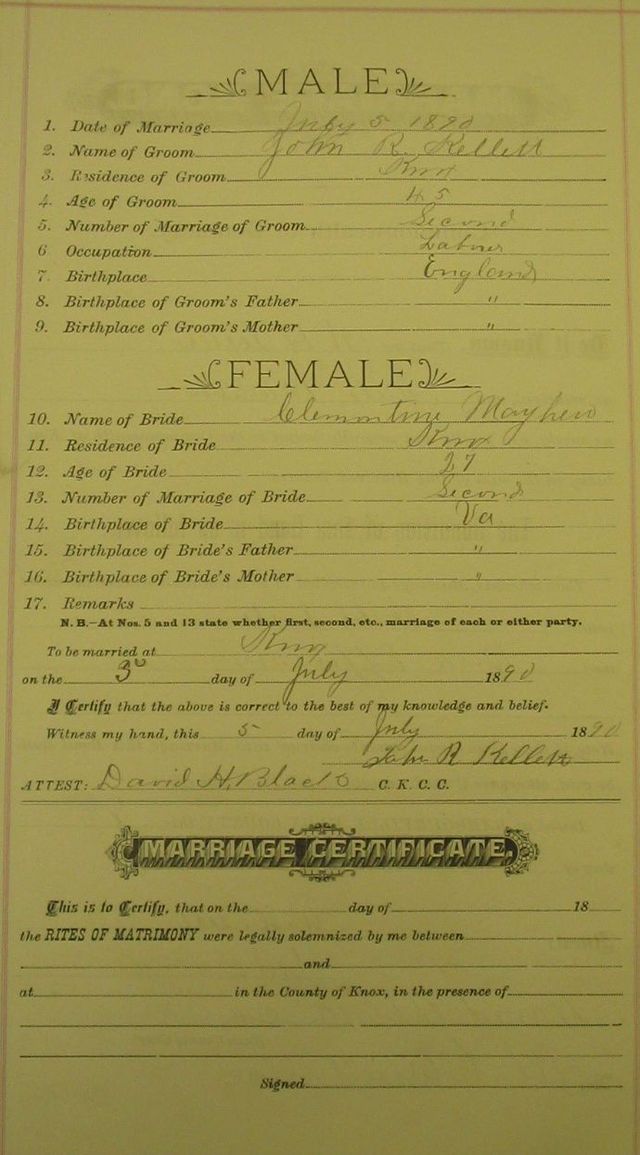 MALE
1. Date of Marriage July 5 1890
2. Name of Groom John R Kellett
3. Residence of Groom Knox
4. Age of Groom 45
5. Number of Marriage of Groom Second
6 Occupation Labour
7. Birthplace England
8. Birthplace of Groom's Father "
9. Birthplace of Groom's Mother "
FEMALE
10. Name of Bride Clemontine Mayhew
11. Residence of Bride Knox
12. Age of Bride 27
13. Number of Marriage of Bride Second
14. Birthplace of Bride Va
15. Birthplace of Bride's Father "
16. Birthplace of Bride's Mother "
17. Remarks
N. B.—At Nos. 5 and 13 state whether first, second, etc., marriage of each or either party.
To be married at Knox
on the day of July 1890
I Certify that the above is correct to the best of my knowledge and belief.
Witness my hand, this 5 day of July 1890
John R Kellett
ATTEST: David H. Black C. K. C. C.
MARRIAGE CERTIFICATE
This is to Certify, that on the day of 18
the RITES OF MATRIMONY were legally solemnized by me between
and
at in the County of Knox, in the presence of
Signed